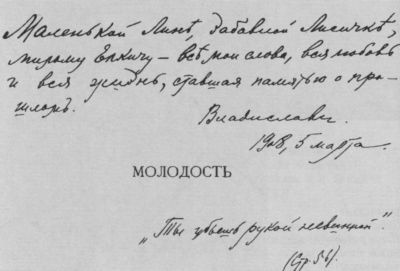 Маленькой Линѣ, забавной Лисичкѣ,
милому Епкичу – всѣ мои слова, вся любовь
и вся жизнь, ставшая памятью о про-
шломъ.
Владиславъ.
1908, 5 марта.
МОЛОДОСТЬ
„Ты убьешь рукой невинной".
(Стр. 56).